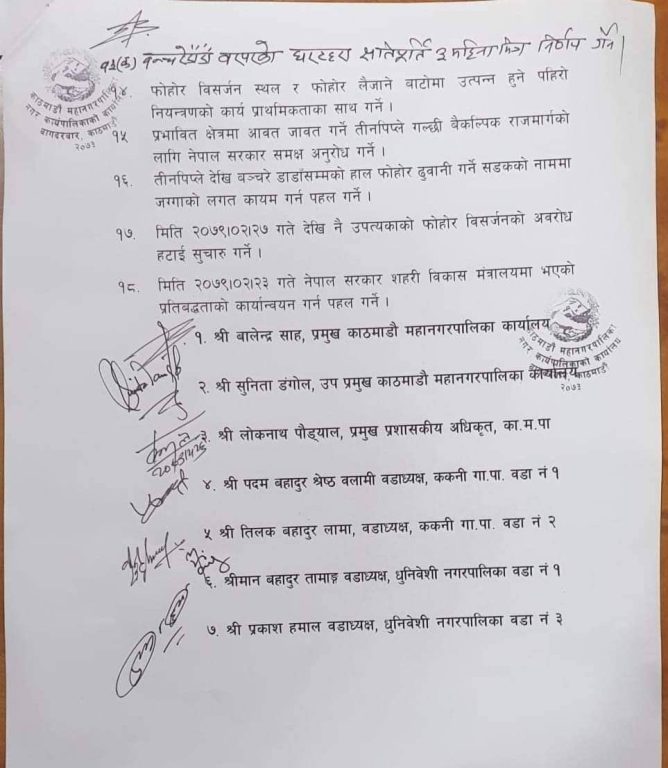 १३(क) बन्चरेडाँडा वरपरको घरटहरा क्षतिपूर्ति ३ महिना भित्र निर्णय गर्ने ।
१४. फोहोर विसर्जन स्थल र फोहोर लैजाने बाटोमा उत्पन्न हुने पहिरो
नियन्त्रणको कार्य प्राथमिकताका साथ गर्ने ।
१५ प्रभावित क्षेत्रमा आवत जावत गर्ने तीनपिप्ले गल्छी बैकल्पिक राजमार्गको
लागि नेपाल सरकार समक्ष अनुरोध गर्ने ।
१६. तीनपिप्ले देखि बञ्चरे डाडाँसम्मको हाल फोहोर ढुवानी गर्ने सडकको नाममा
जग्गाको लगत कायम गर्न पहल गर्ने ।
१७. मिति २०७९।०२।२७ गते देखि नै उपत्यकाको फोहोर विसर्जनको अवरोध
हटाई सुचारु गर्ने ।
१८. मिति २०७९।०२।२३ गते नेपाल सरकार शहरी विकास मंत्रालयमा भएको
प्रतिबद्धताको कार्यान्वयन गर्न पहल गर्ने ।
काठमाडौं महानगरपालिका
नगर कार्यपालिकाको कार्यालय
बागदरबार, काठमाडौं
२०७३
१. श्री बालेन्द्र साह, प्रमुख काठमाडौ महानगरपालिका कार्यालय
२. श्री सुनिता डंगोल, उप प्रमुख काठमाडौ महानगरपालिका कार्यालय
काठमाडौं महानगरपालिका
नगर कार्यपालिकाको कार्यालय
काठमाडौं
२०७३
३. श्री लोकनाथ पौड्याल, प्रमुख प्रशासकीय अधिकृत, का.म.पा
४. श्री पदम बहादुर श्रेष्ठ वलामी वडाध्यक्ष, ककनी गा.पा. वडा नं १
५ श्री तिलक बहादुर लामा, वडाध्यक्ष, ककनी गा.पा. वडा नं २
६. श्रीमान बहादुर तामाङ्ग वडाध्यक्ष, धुनिवेशी नगरपालिका वडा नं १
७. श्री प्रकाश हमाल वडाध्यक्ष, धुनिवेशी नगरपालिका वडा नं ३